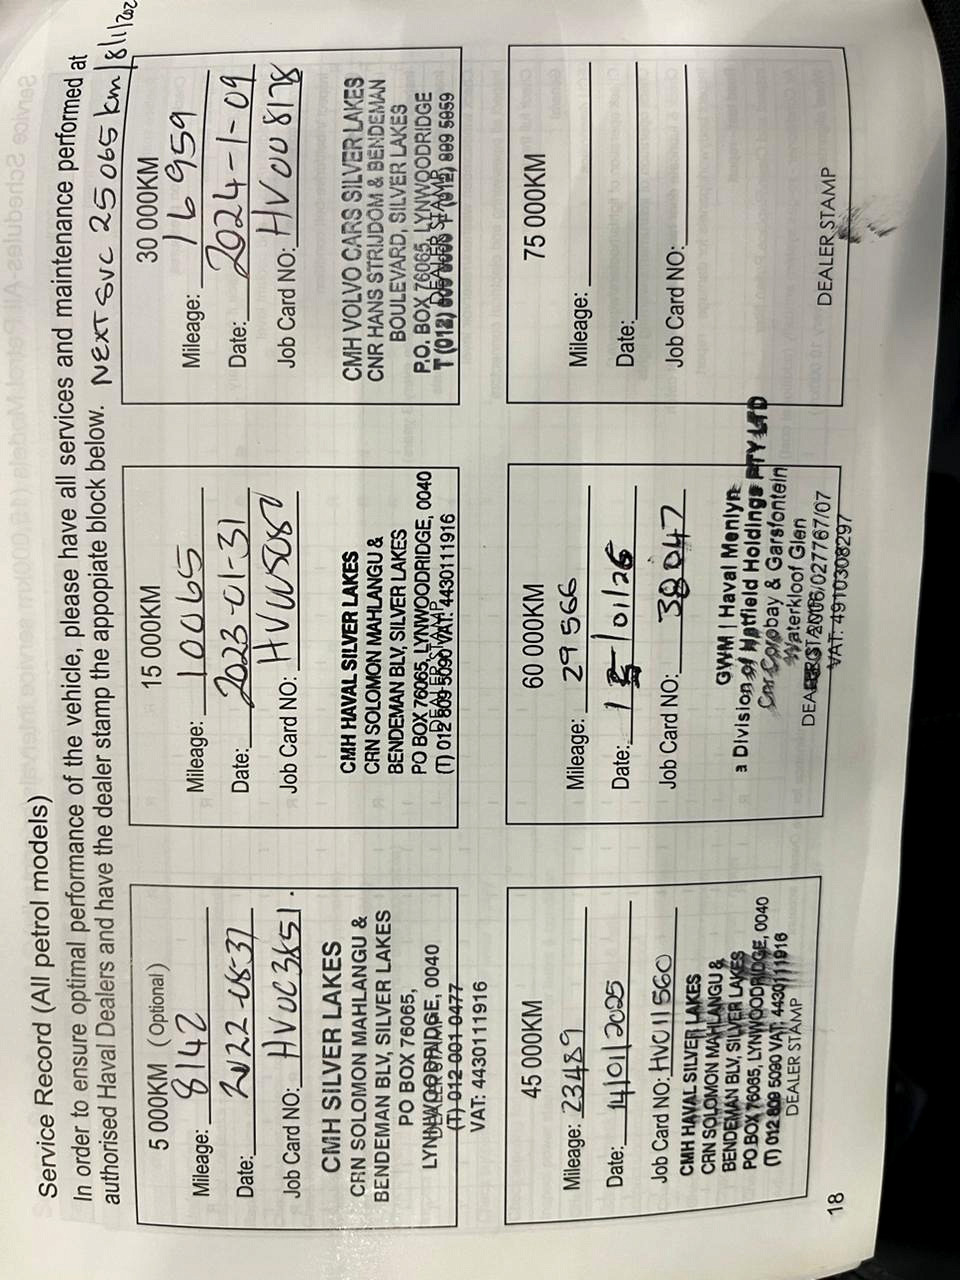 Service Record (All petrol models)
In order to ensure optimal performance of the vehicle, please have all services and maintenance performed at
authorised Haval Dealers and have the dealer stamp the appopiate block below. NEXT SVC 25065km/8/1/202
5 000KM (Optional)
Mileage: 8142
Date: 2022-08-31
Job Card NO: HVOC3851.
CMH SILVER LAKES
CRN SOLOMON MAHLANGU &
BENDEMAN BLV, SILVER LAKES
PO BOX 76065,
LYNNWOODRIDGE, 0040
DEALER STAMP
(T) 012 001 0477
VAT: 4430111916
15 000KM
Mileage: 10065
Date: 2023-01-31
Job Card NO:
CMH HAVAL SILVER LAKES
CRN SOLOMON MAHLANGU &
BENDEMAN BLV, SILVER LAKES
PO BOX 76065, LYNWOODRIDGE, 0040
DEALER STAMP
(T) 012 809 5090 VAT: 4430111916
30 000KM
Mileage: 16959
Date: 2024-1-09
Job Card NO: HV008178
CMH VOLVO CARS SILVER LAKES
CNR HANS STRIJDOM & BENDEMAN
BOULEVARD, SILVER LAKES
P.O. BOX 76065, LYNWOODRIDGE
DEALER STAMP
T (012) F (012) 809 5059
45 000KM
Mileage: 23489
Date: 14/01/2025
Job Card NO: HVO11560
CMH HAVAL SILVER LAKES
CRN SOLOMON MAHLANGU &
BENDEMAN BLV, SILVER LAKES
PO BOX 76065, LYNWOODRIDGE, 0040
(T) 012 809 5090 VAT: 4430111916
DEALER STAMP
60 000KM
Mileage: 29566
Date: /01/26
Job Card NO: 38047
GWM | Haval Menlyn
a Division of Hatfield Holdings PTY LTD
Cnr Corobay & Garsfontein
Waterkloof Glen
2006/027767/07
VAT: 4910308297
75 000KM
Mileage:
Date:
Job Card NO:
DEALER STAMP
18